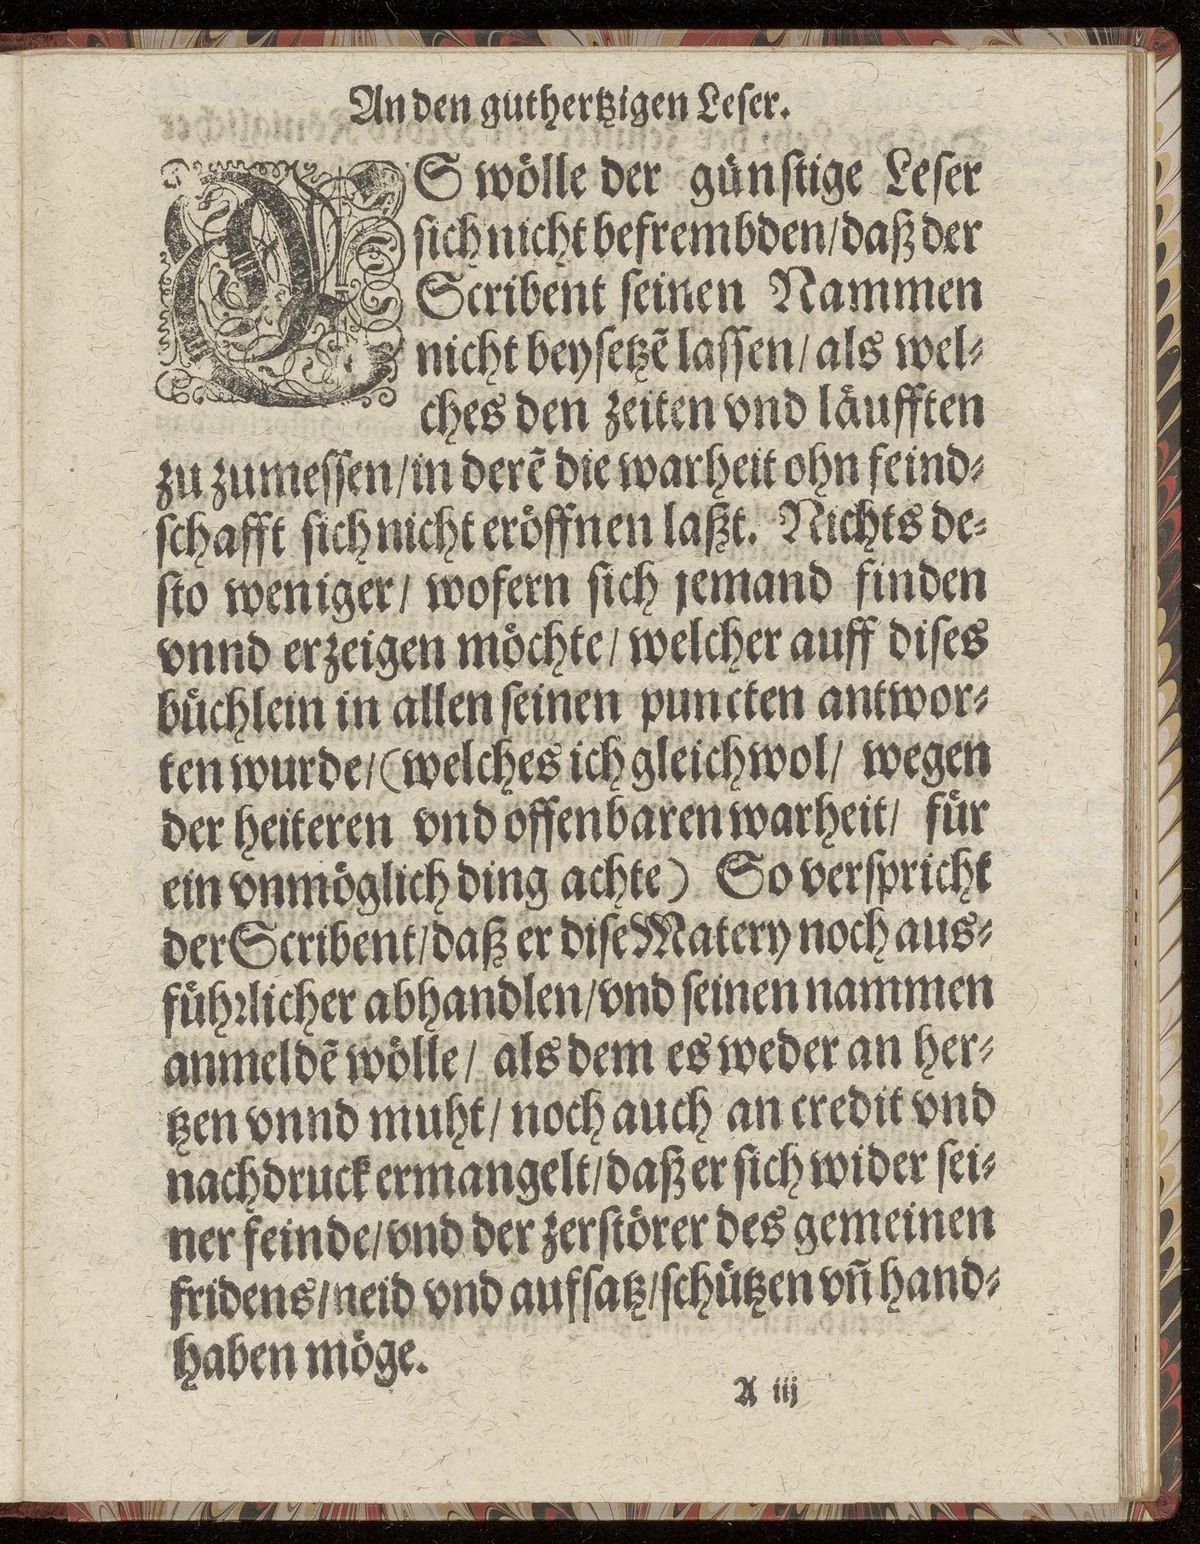 An den guthertzigen Leser.
ES wölle der günſtige Leſer
ſich nicht befrembden/ daß der
Scribent ſeinen Nammen
nicht beyſetzẽ laſſen/ als wel⸗
ches den zeiten vnd läufften
zu zumeſſen/ in derẽ die warheit ohn feind⸗
ſchafft ſich nicht eröffnen laßt. Nichts de⸗
ſto weniger/ wofern ſich jemand finden
vnnd erzeigen möchte/ welcher auff diſes
büchlein in allen ſeinen puncten antwor⸗
ten wurde/ (welches ich gleichwol/ wegen
der heiteren vnd offenbaren warheit/ für
ein vnmöglich ding achte) So verſpricht
der Scribent/ daß er diſe Matery noch aus⸗
führlicher abhandlen/ vnd ſeinen nammen
anmeldẽ wölle/ als dem es weder an her⸗
tzen vnnd muht/ noch auch an credit vnd
nachdruck ermangelt/ daß er ſich wider ſei⸗
ner feinde/ vnd der zerſtörer des gemeinen
fridens/ neid vnd aufſatz/ ſchützen vñ hand⸗
haben möge.
A iij